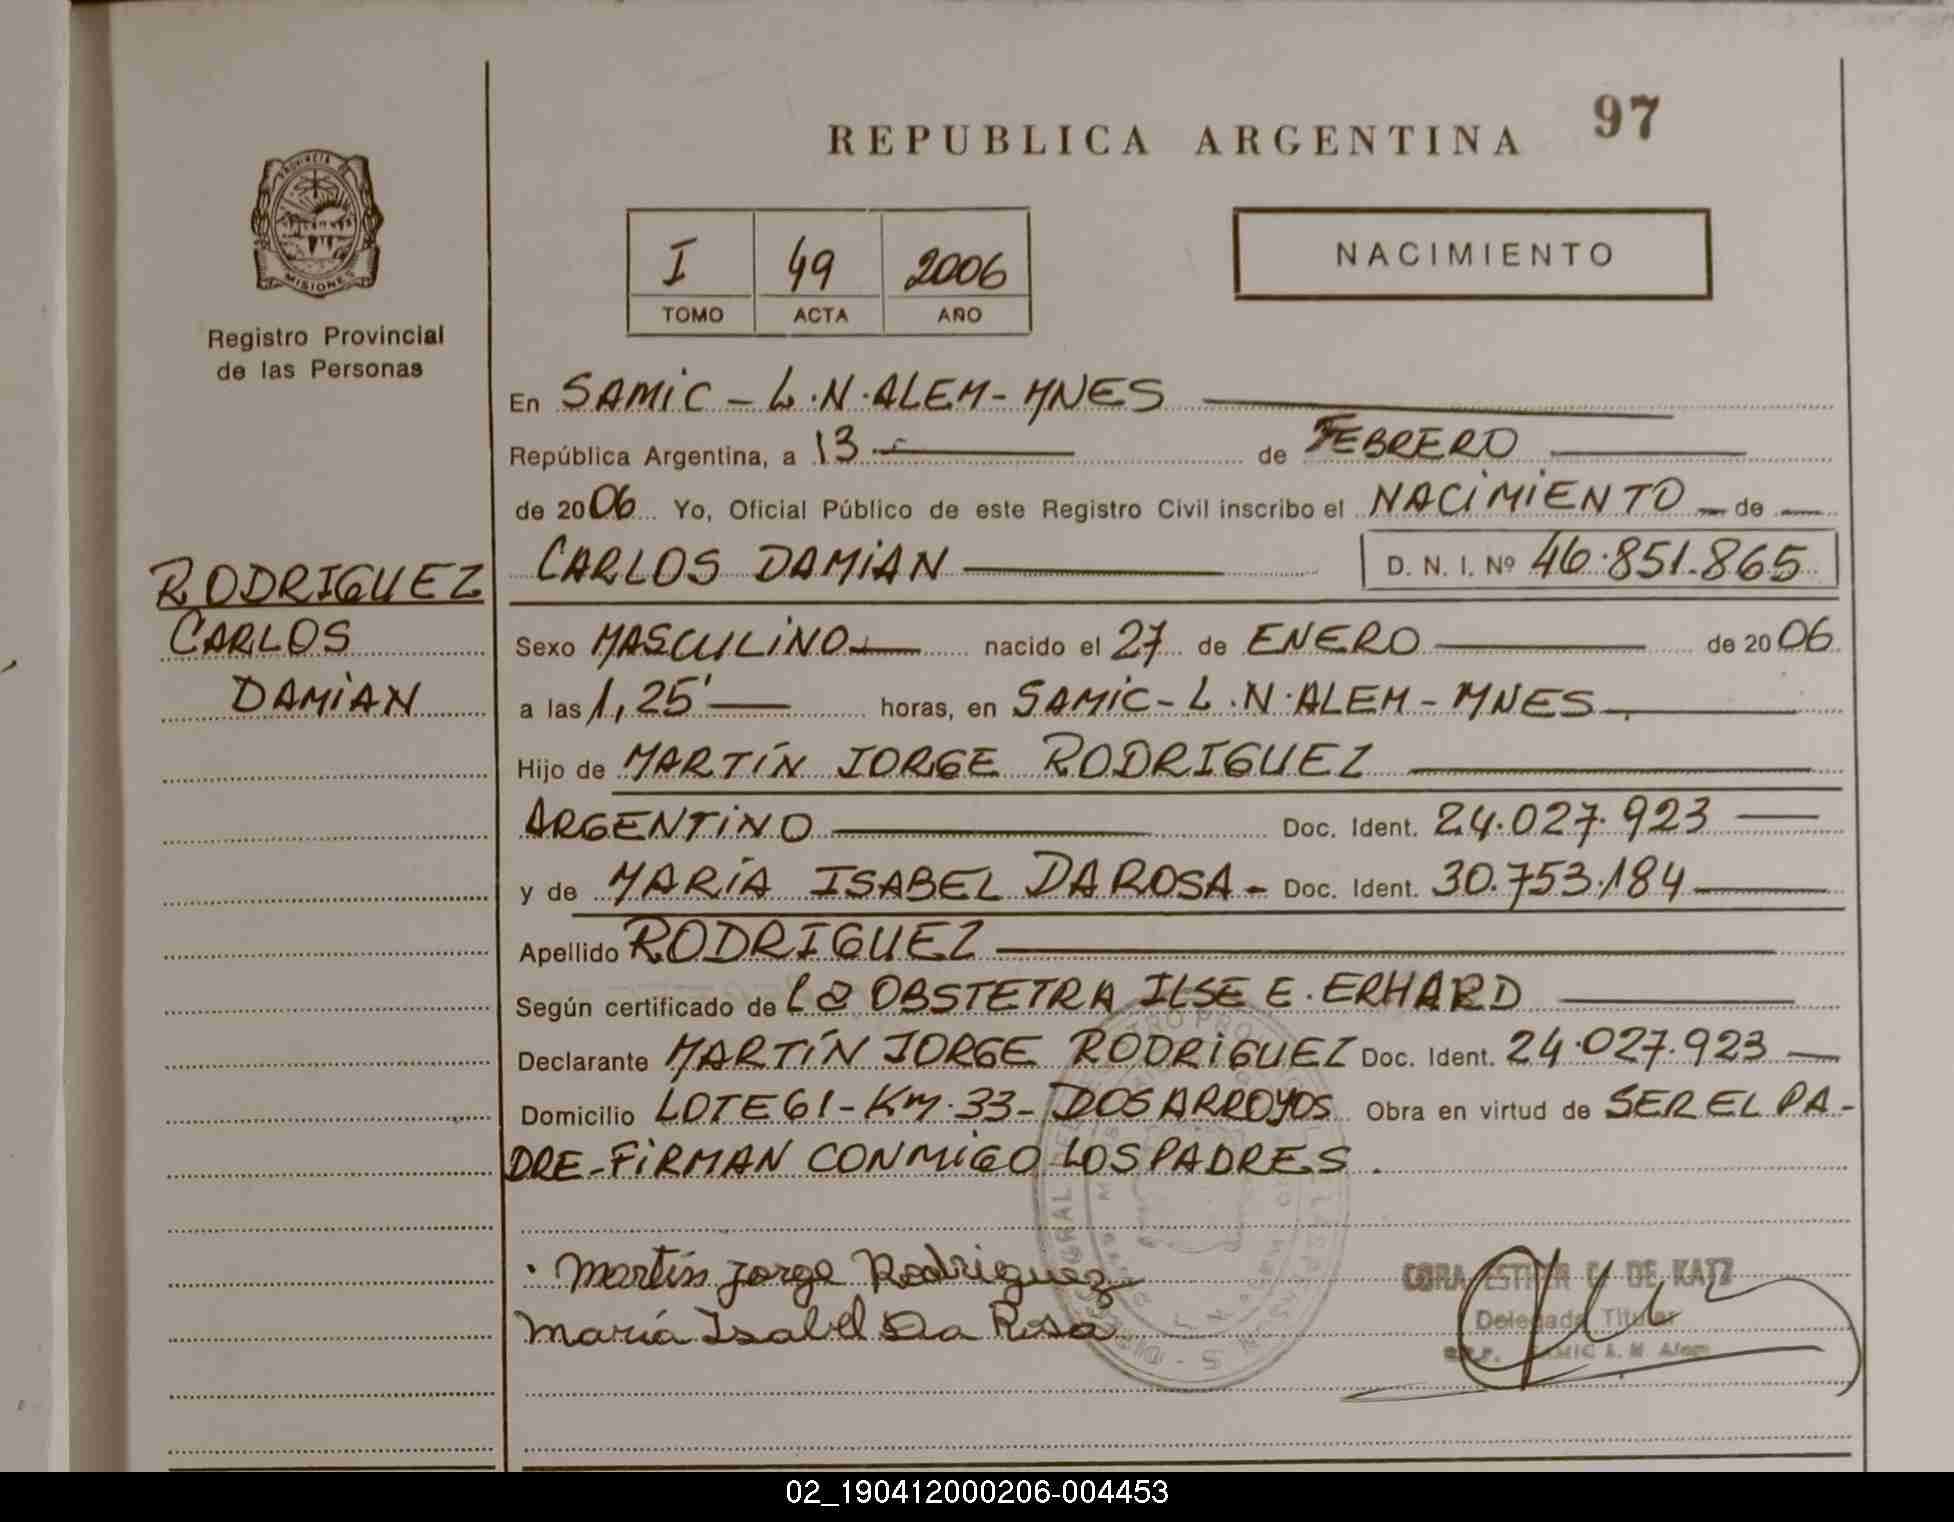 REPUBLICA ARGENTINA 97
PROVINCIA DE
MISIONES
Registro Provincial
de las Personas
I 49 2006
TOMO ACTA AÑO
NACIMIENTO
En SAMIC - L.N. ALEM - MNES
República Argentina, a 13 de FEBRERO
de 2006 Yo, Oficial Público de este Registro Civil inscribo el NACIMIENTO de
CARLOS DAMIAN D. N. I. Nº 46.851.865
RODRIGUEZ
CARLOS
DAMIAN
Sexo MASCULINO nacido el 27 de ENERO de 2006
a las 1,25' horas, en SAMIC - L.N. ALEM - MNES
Hijo de MARTÍN JORGE RODRIGUEZ
ARGENTINO Doc. Ident. 24.027.923
y de MARÍA ISABEL DA ROSA - Doc. Ident. 30.753.184
Apellido RODRIGUEZ
Según certificado de La OBSTETRA ILSE E. ERHARD
Declarante MARTÍN JORGE RODRIGUEZ Doc. Ident. 24.027.923
Domicilio LOTE 61 - KM. 33 - DOS ARROYOS Obra en virtud de SER EL PA-
DRE - FIRMAN CONMIGO LOS PADRES.
Martín Jorge Rodriguez
María Isabel Da Rosa
ESTHER C. DE KATZ
Delegada Titular
SAMIC L. N. Alem
02_190412000206-004453